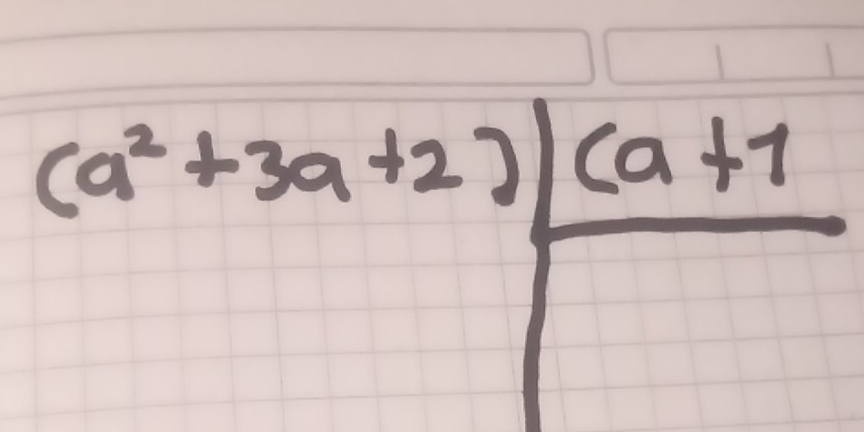 (a² + 3a + 2) (a + 1